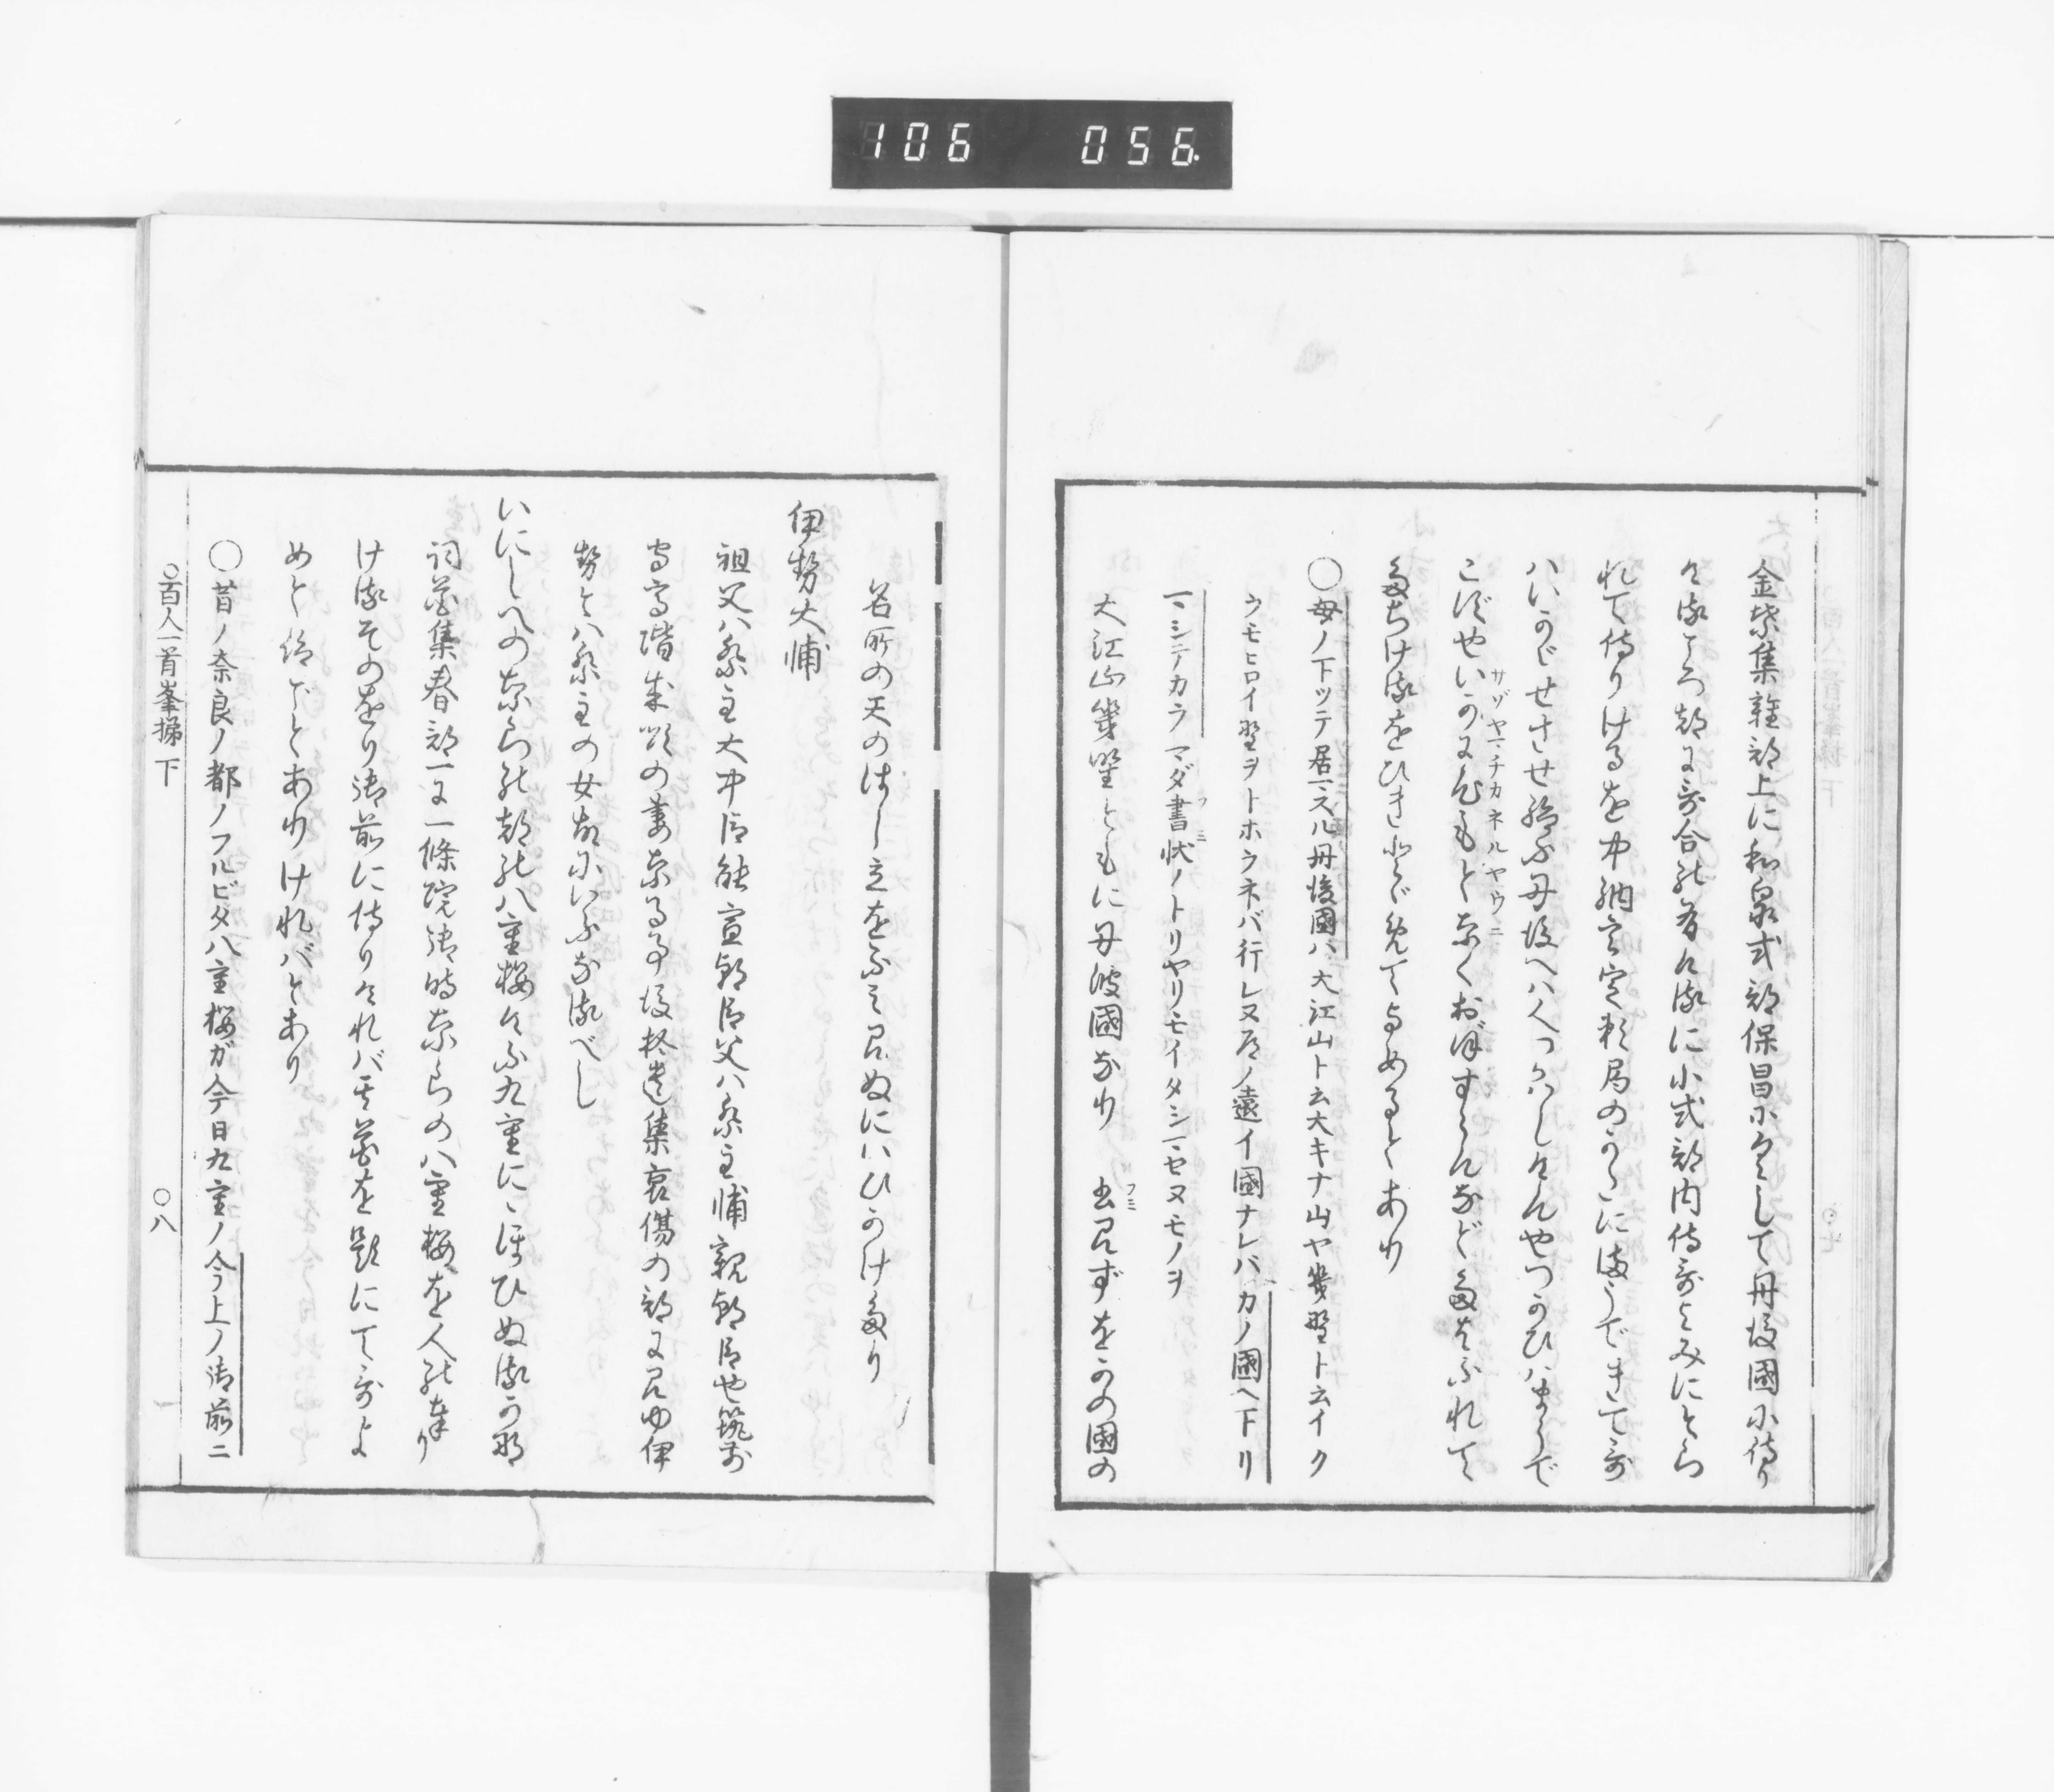 106 056
金葉集雑部上に和泉式部保昌にぐして丹後國に侍り
ける比都に哥合の有けるに小式部内侍哥よみにとら
れて侍りけるを中納言定頼局のかたにまうできて哥
はいかゞせさせ給ふ丹後へハ人つかハしけんやつかひハまうで
こずやいかに心もとなくおぼすらんなどたはふれて
サゾヤマチカネルヤウニ
たちけるをひきとゞめてよめるとあり
○母ノ下ツテ居マスル丹後國ハ大江山ト云大キナ山ヤ幾野ト云イク
ウモヒロイ野ヲトホラネバ行レヌ
ノ遠イ國ナレバカノ國ヘ下リ
マシテカラマダ書状ノトリヤリモイタシマセヌモノヲ
フミ
大江山幾野ともに丹波國なり 文見ずをかの國の
フミ
名所の天のはし立をふみ見ぬにいひかけたり
伊勢大輔
祖父ハ祭主大中臣能宣朝臣父ハ祭主輔親朝臣也筑前
守高階成順の妻なる事後拾遺集哀傷の部に見ゆ伊
勢とハ祭主の女故にいふなるべし
いにしへの奈良の都の八重桜けふ九重にゝほひぬるかな
詞花集春部に一條院御時奈良の八重桜を人の奉り
けるそのをり御前に侍りけれバ其花を題にて哥よ
めと仰ごとありけれバとあり
○昔ノ奈良ノ都ノフルビタ八重桜ガ今日九重ノ今上ノ御前ニ
○百人一首峯梯 下 ○八